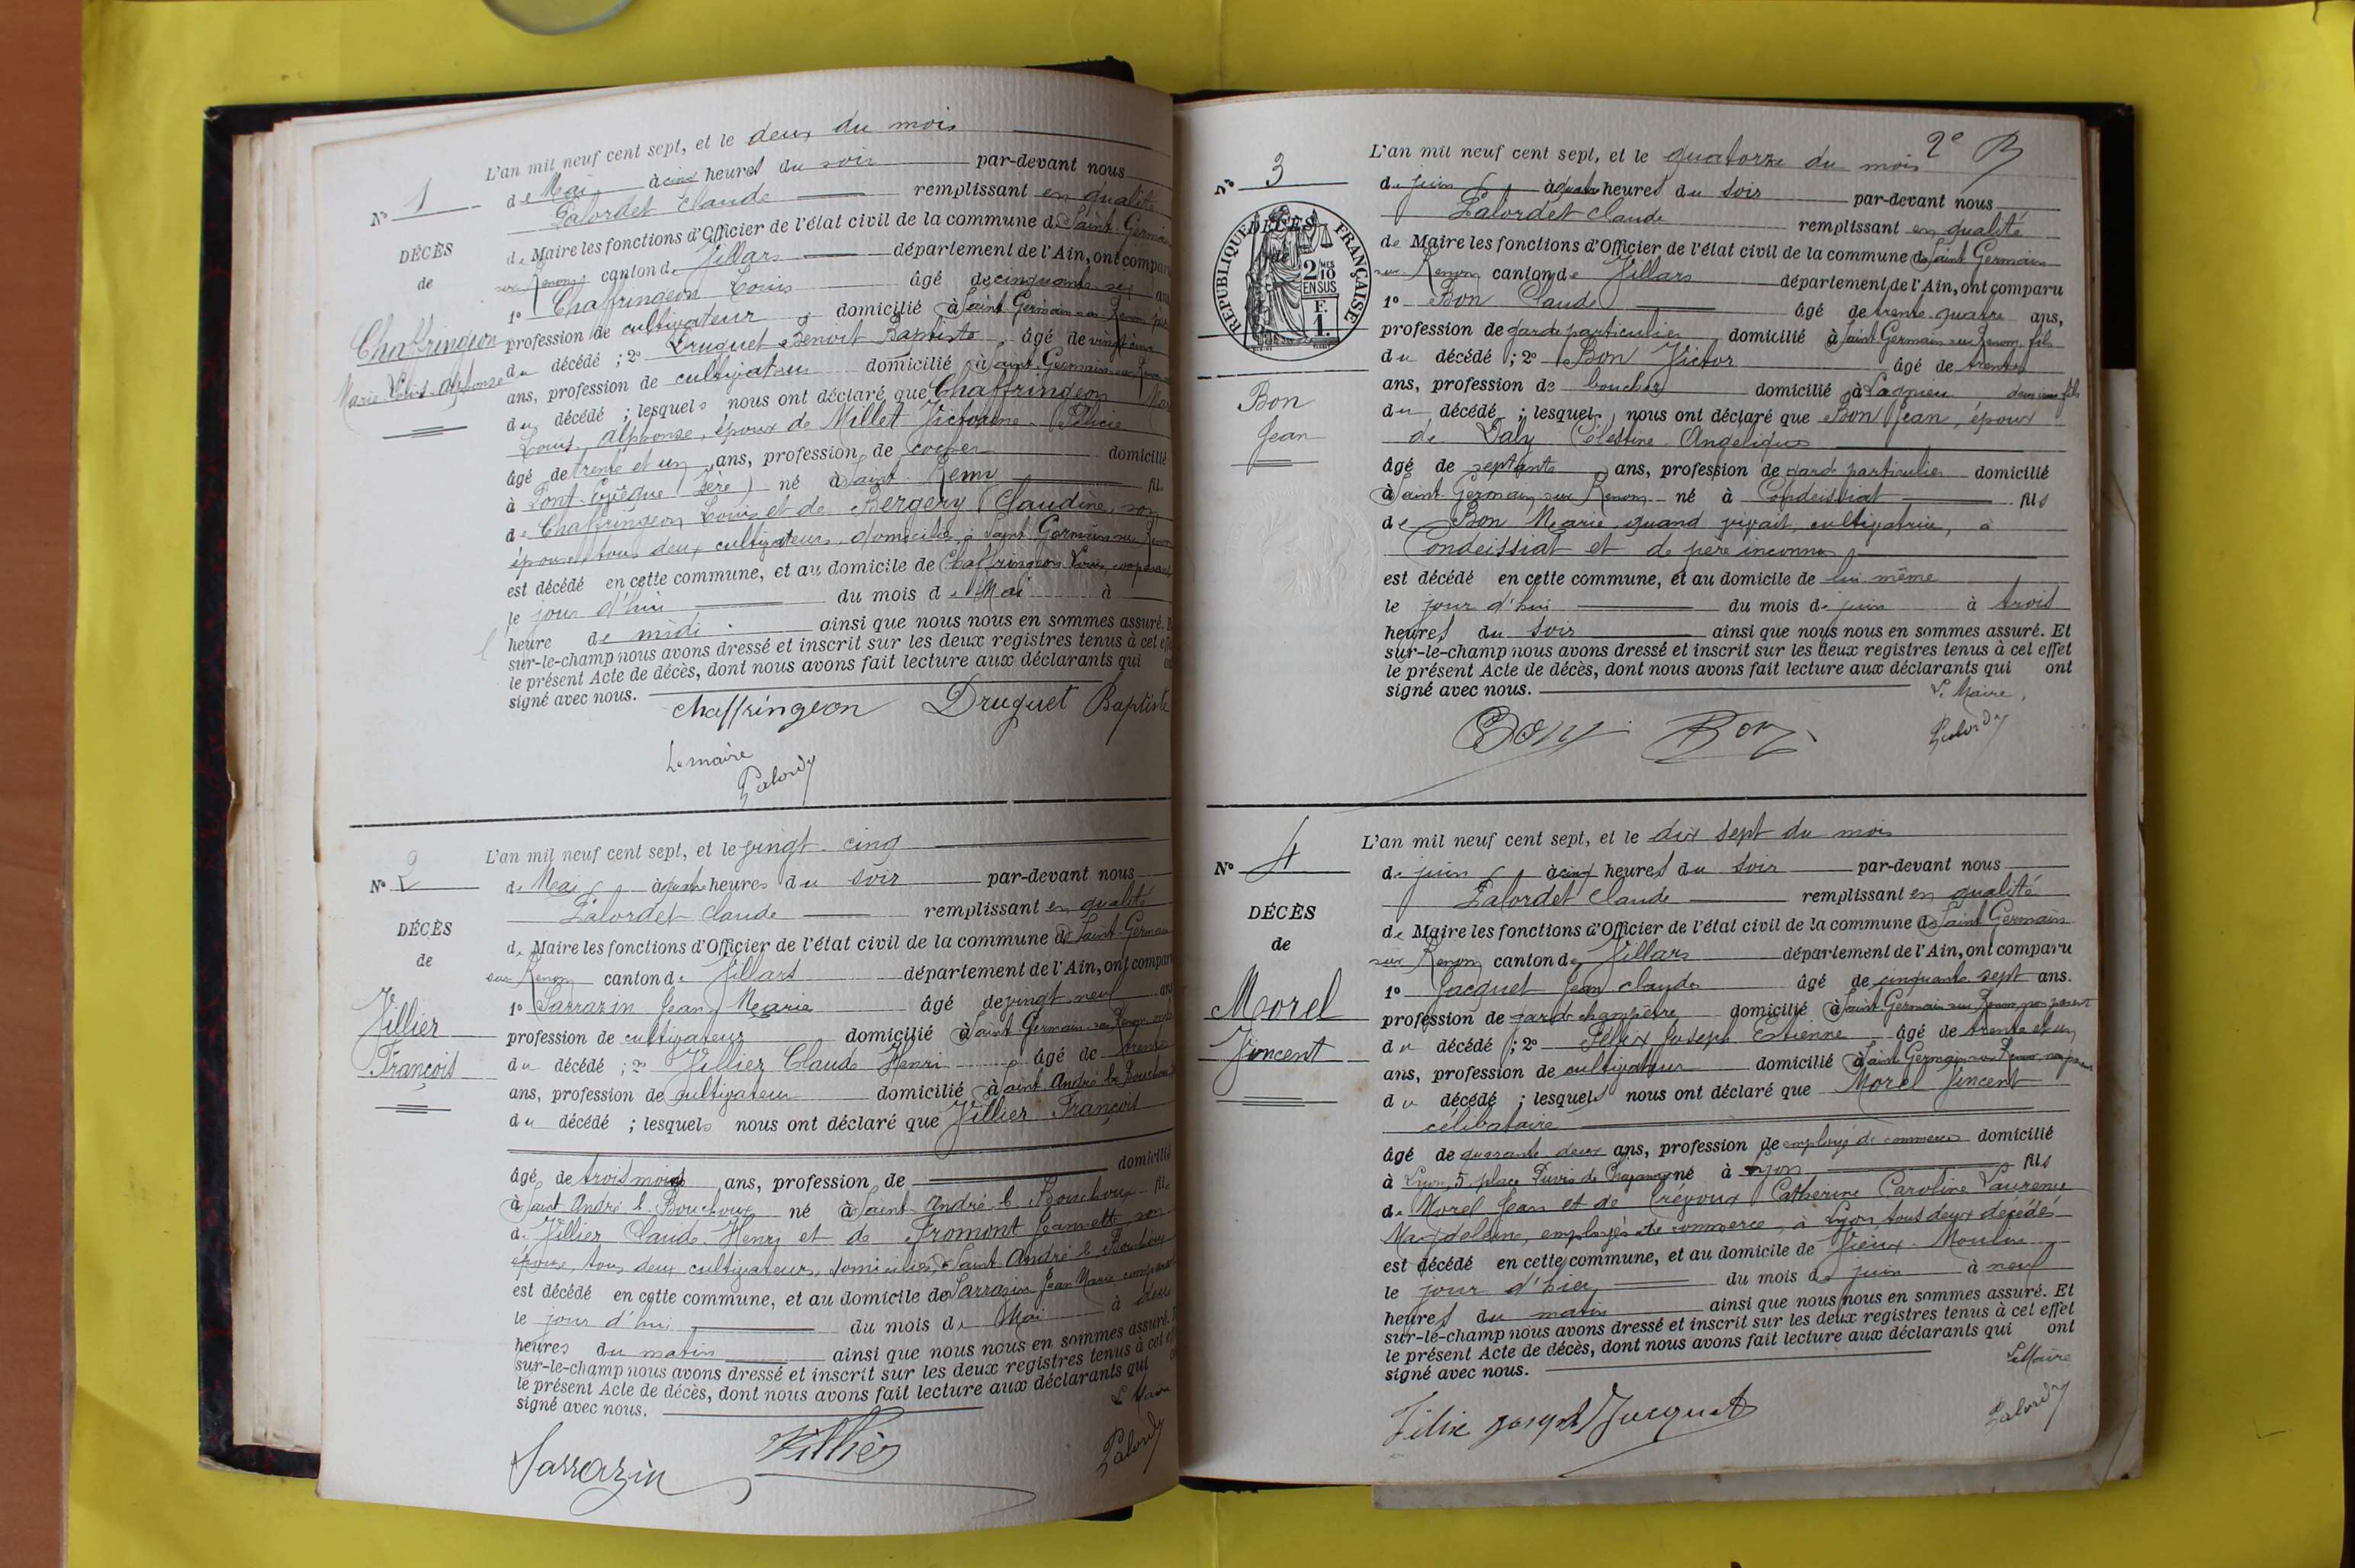 L'an mil neuf cent sept, et le deux du mois
de Mai à cinq heures du soir par-devant nous
Nº 1
Palordet Claude remplissant en qualité
de Maire les fonctions d'Officier de l'état civil de la commune de Saint Germain
DÉCÈS
sur Renom canton de Villars département de l'Ain, ont compar
de
1º Chaffringeon Louis âgé de cinquante six ans
Chaffringeon
profession de cultivateur domicilié à Saint Germain sur Renom père
Marie Louis Alphonse
du décédé ; 2º Druguet Benoit Baptiste âgé de vingt cinq
ans, profession de cultivateur domicilié à Saint Germain sur Renom
du décédé ; lesquels nous ont déclaré que Chaffringeon Mar
Louis Alphonse, époux de Millet Victorine Félicie
âgé de trente et un ans, profession de cocher domicilié
à Pont-Evêque (Isère) né à Saint Remy fils
de Chaffringeon Louis et de Bergery Claudine, son
épouse, tous deux cultivateurs, domiciliés à Saint Germain sur Renom
est décédé en cette commune, et au domicile de Chaffringeon Louis, comparant
le jour d'hui du mois de Mai à
heure de midi ainsi que nous nous en sommes assuré. E
sur-le-champ nous avons dressé et inscrit sur les deux registres tenus à cet eff
le présent Acte de décès, dont nous avons fait lecture aux déclarants qui on
signé avec nous.
Chaffringeon Druguet Baptiste
Le maire
Palordet
L'an mil neuf cent sept, et le vingt-cinq
Nº 2
de Mai à quatre heures du soir par-devant nous
Palordet Claude remplissant en qualité
DÉCÈS
de Maire les fonctions d'Officier de l'état civil de la commune de Saint-Germain
de
sur Renom canton de Villars département de l'Ain, ont compar
1º Sarrazin Jean Marie âgé de vingt neuf ans
Villier
profession de cultivateur domicilié à Saint Germain sur Renom
François
du décédé ; 2º Villier Claude Henri âgé de trente
ans, profession de cultivateur domicilié à Saint André le Bouchoux
du décédé ; lesquels nous ont déclaré que Villier François
âgé de trois mois ans, profession de domicilié
à Saint André le Bouchoux né à Saint André le Bouchoux fils
de Villier Claude Henry et de Fromont Jeannette, son
épouse, tous deux cultivateurs, domiciliés à Saint André le Bouchoux
est décédé en cette commune, et au domicile de Sarrazin Jean Marie comparant
le jour d'hui du mois de Mai à deux
heures du matin ainsi que nous nous en sommes assuré. E
sur-le-champ nous avons dressé et inscrit sur les deux registres tenus à cet eff
le présent Acte de décès, dont nous avons fait lecture aux déclarants qui on
signé avec nous.
Le Maire
Sarrazin Villier Palordet
2e
L'an mil neuf cent sept, et le quatorze du mois
Nº 3
de juin à quatre heures du soir par-devant nous
Palordet Claude remplissant en qualité
DÉCÈS
de
RÉPUBLIQUE FRANÇAISE
2/10 MES
EN SUS
F.
1.
de Maire les fonctions d'Officier de l'état civil de la commune de Saint Germain
sur Renom canton de Villars département de l'Ain, ont comparu
1º Bon Claude âgé de trente quatre ans,
profession de garde particulier domicilié à Saint Germain sur Renom, fils
du décédé ; 2º Bon Victor âgé de trente
ans, profession de boucher domicilié à Lagnieu deuxième fils
Bon
du décédé ; lesquels nous ont déclaré que Bon Jean, époux
Jean
de Daly Célestine Angélique
âgé de septante ans, profession de garde particulier domicilié
à Saint Germain sur Renom né à Condeissiat fils
de Bon Marie quand vivait, cultivatrice, à
Condeissiat et de père inconnu
est décédé en cette commune, et au domicile de lui même
le jour d'hui du mois de juin à trois
heures du soir ainsi que nous nous en sommes assuré. Et
sur-le-champ nous avons dressé et inscrit sur les deux registres tenus à cet effet
le présent Acte de décès, dont nous avons fait lecture aux déclarants qui ont
signé avec nous.
Le Maire,
Bon Bon Palordet
L'an mil neuf cent sept, et le dix sept du mois
Nº 4
de juin à cinq heures du soir par-devant nous
Palordet Claude remplissant en qualité
DÉCÈS
de Maire les fonctions d'Officier de l'état civil de la commune de Saint Germain
de
sur Renom canton de Villars département de l'Ain, ont comparu
1º Jacquet Jean Claude âgé de cinquante sept ans.
Morel
profession de garde champêtre domicilié à Saint Germain sur Renom, non parent
du décédé ; 2º Félix Joseph Etienne âgé de trente et un
Vincent
ans, profession de cultivateur domicilié à Saint Germain sur Renom, non parent
du décédé ; lesquels nous ont déclaré que Morel Vincent
célibataire
âgé de quarante deux ans, profession de employé de commerce domicilié
à Lyon, 5, place Puvis de Chavannes né à Lyon fils
de Morel Jean et de Crévoux Catherine Caroline Laurence
Magdeleine, employés de commerce, à Lyon tous deux décédés
est décédé en cette commune, et au domicile de Vieux-Moulin
le jour d'hier du mois de juin à neuf
heures du matin ainsi que nous nous en sommes assuré. Et
sur-le-champ nous avons dressé et inscrit sur les deux registres tenus à cet effet
le présent Acte de décès, dont nous avons fait lecture aux déclarants qui ont
signé avec nous.
Le Maire
Félix Joseph Jacquet Palordet